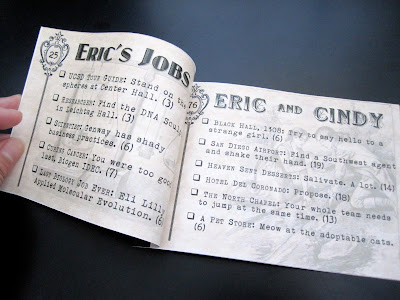 25
ERIC'S JOBS
☐ UCSD TOUR GUIDE: Stand on the
spheres at Center Hall. (3)
☐ RESEARCHER: Find the DNA
in Leichtag Hall. (3)
☐ SCIENTIST: Genway has shady
business practices. (6)
☐ You were too good
Biogen IDEC. (7)
☐ LAST BIOLOGY JOB EVER: Eli Lilly
Applied Molecular Evolution. (6)
76
ERIC AND CINDY
☐ BLACK HALL, 1408: Try to say hello to a
strange girl. (6)
☐ SAN DIEGO AIRPORT: Find a Southwest agent
and shake their hand. (19)
☐ HEAVEN SENT DESSERTS: Salivate. A lot. (14)
☐ HOTEL DEL CORONADO: Propose. (18)
☐ THE NORTH CHAPEL: Your whole team needs
to jump at the same time. (13)
☐ A PET STORE: Meow at the adoptable cats.
(6)